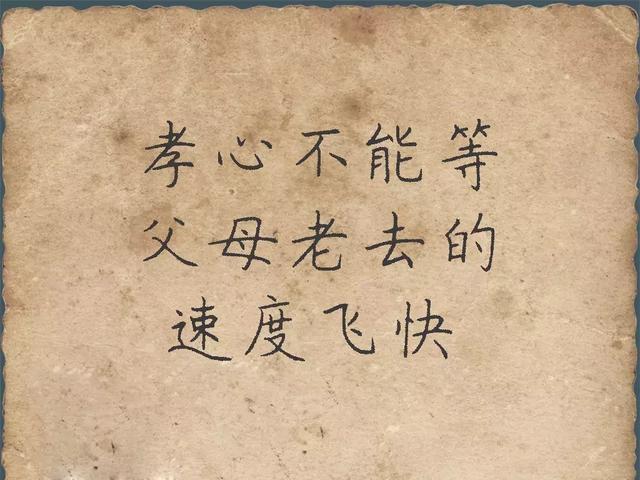 孝心不能等
父母老去的
速度飞快